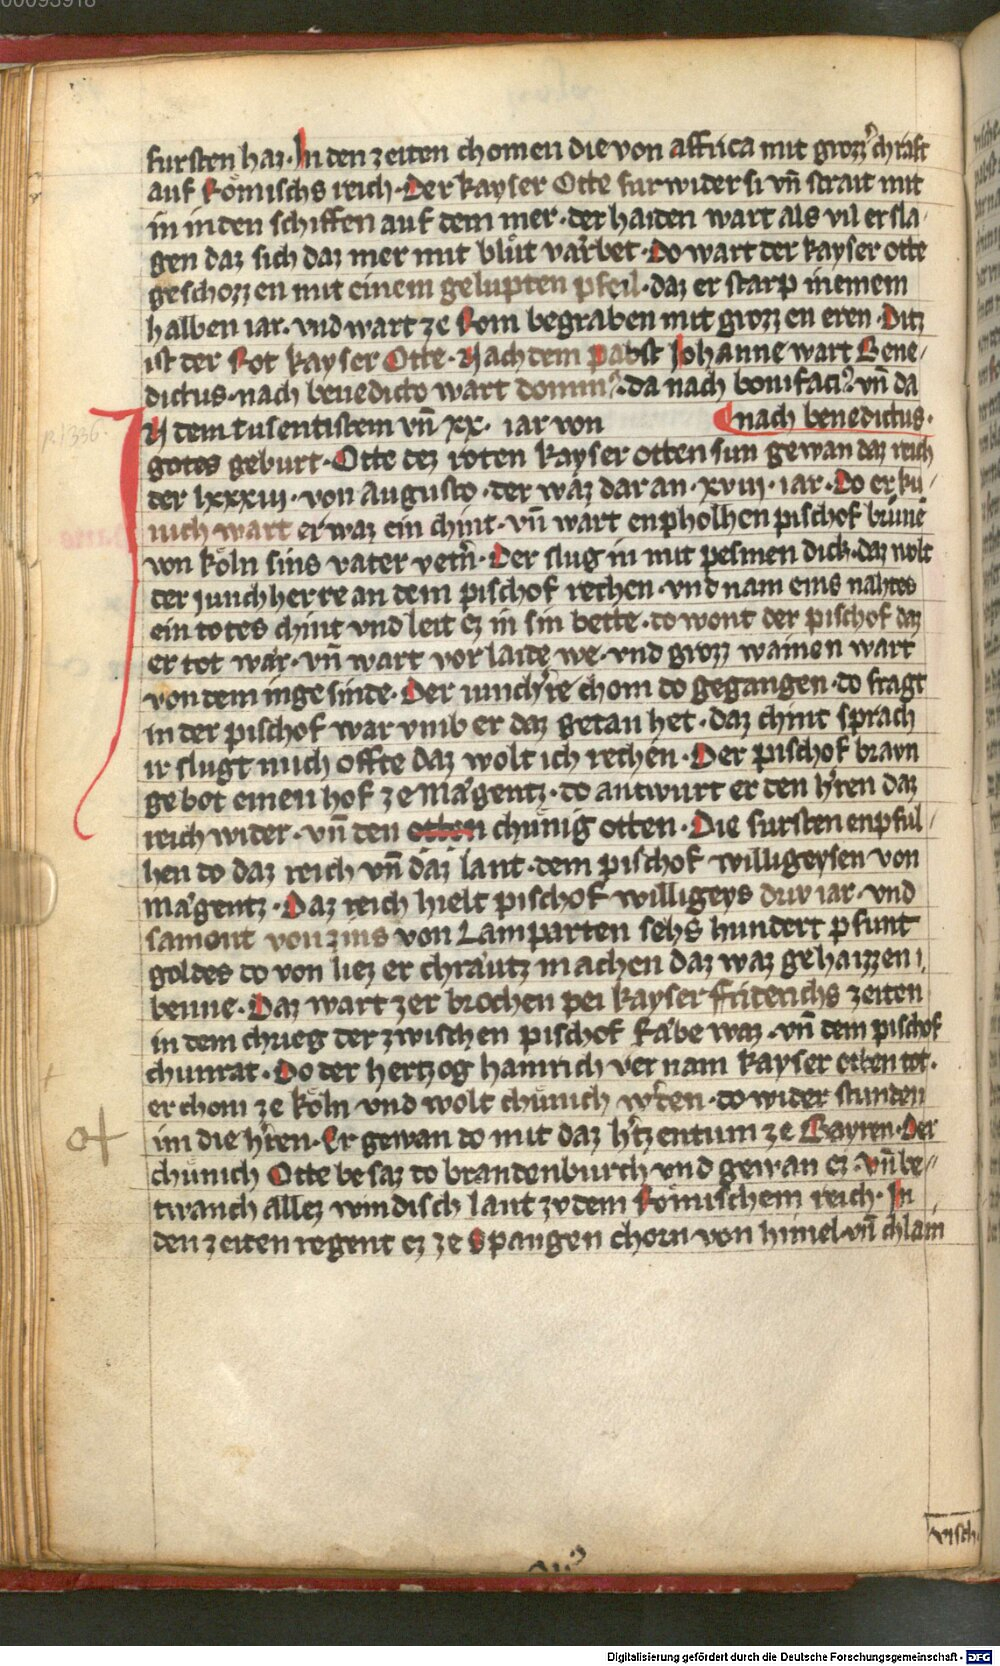 00093918
fursten haz. In den zeiten chomen die von affrica mit grozz' chraft
auf Römischs reich. Der kayser Otte fur wider si vn̄ strait mit
in in den schiffen auf dem mer. der haiden wart als vil ersla/
gen daz sich daz mer mit blůt varbet. Do wart der kayser otte
geschozzen mit einem gelupten pfeil. daz er starp in einem
halben iar. vnd wart ze Rom begraben mit grozzen eren. Ditz
ist der Rot kayser Otte. Nach dem pabst Johanne wart Bene/
dictus. nach benedicto wart domin?. da nach bonifaci? vn̄ da
N dem tusentistem vn̄ xx. iar von nach benedictus.
R 1336.
gotes geburt. Otte dez roten kayser otten sun gewan daz reich
der lxxxiij. von Augusto. der waz dar an. xviij. iar. Do er ku/
nich wart er waz ein chint. vn̄ wart enpholhen pischof brůne
von köln sins vater vetn'. Der slug in mit pesmen dick. daz wolt
der junchherre an dem pischof rechen. vnd nam eins nahtes
ein totes chint vnd leit ez in sin bette. do wont der pischof daz
er tot wär. vn̄ wart vor laide we. vnd groz wainen wart
von dem ingesinde. Der iunch're chom do gegangen. do fragt
in der pischof war vmb er daz getan het. daz chint sprach
ir slugt mich offte daz wolt ich rechen. Der pischof bravn
gebot einen hof ze Mägentz. do antwurt er den h'ren daz
reich wider. vn̄ den otten chünig otten. Die fursten enpful/
hen do daz reich vn̄ daz lant. dem pischof willigeysen von
mägentz. Daz reich hielt pischof willigeys driv iar. vnd
sament von zins von Lamparten sehs hundert pfunt
goldes do von liez er chräutz machen daz waz gehaizzen
benne. Daz wart zerbrochen pei kayser friderichs zeiten
in dem chrieg der zwischen pischof Räbe waz. vn̄ dem pischof
chunrat. Do der hertzog hainrich vernam kayser otten tot.
er chom ze köln vnd wolt chünich w'den. do wider stunden
im die h'ren. Er gewan do mit daz h'tzentum ze Bayren. Der
chünich Otte besaz do brandenburch vnd gewan ez. vn̄ be//
twanch allez windisch lant zv dem Römischem reich. In
den zeiten regent ez ze Spangen chorn von himel. vn̄ chlain
visch.
Digitalisierung gefördert durch die Deutsche Forschungsgemeinschaft - DFG